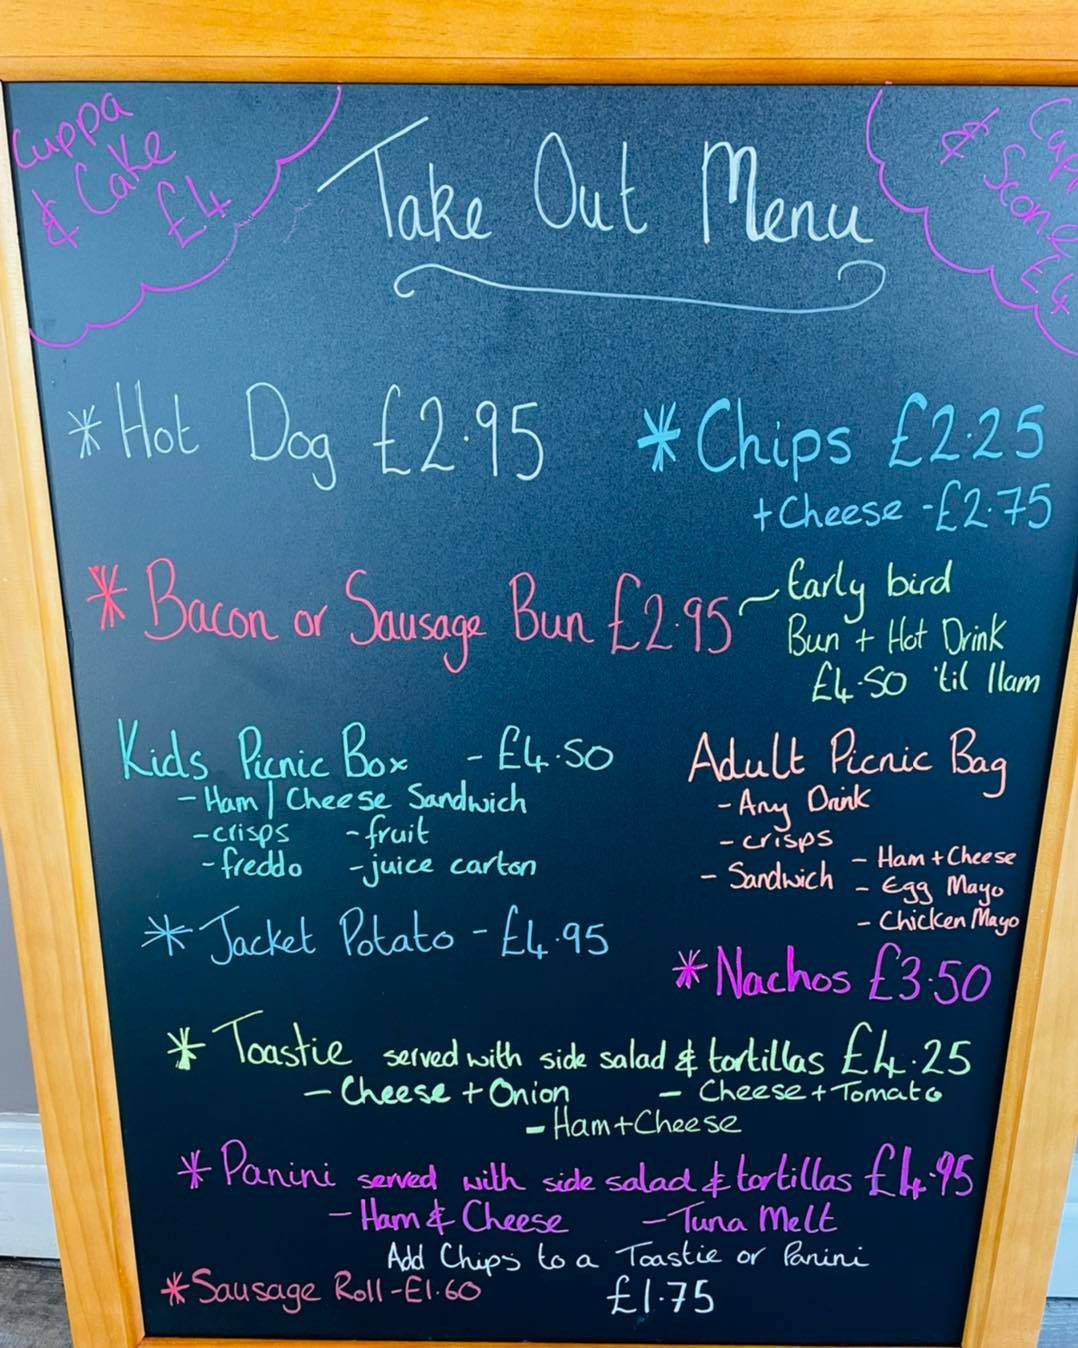 Cuppa
& Cake
£4
Take Out Menu
& Scone
£4
* Hot Dog £2.95
* Chips £2.25
+ Cheese - £2.75
* Bacon or Sausage Bun £2.95
Early bird
Bun + Hot Drink
£4.50 'til 11am
Kids Picnic Box - £4.50
- Ham / Cheese Sandwich
- crisps - fruit
- freddo - juice carton
Adult Picnic Bag
- Any Drink
- crisps
- Sandwich - Ham + Cheese
- Egg Mayo
- Chicken Mayo
* Jacket Potato - £4.95
* Nachos £3.50
* Toastie served with side salad & tortillas £4.25
- Cheese + Onion - Cheese + Tomato
- Ham + Cheese
* Panini served with side salad & tortillas £4.95
- Ham & Cheese - Tuna Melt
Add Chips to a Toastie or Panini
£1.75
* Sausage Roll - £1.60